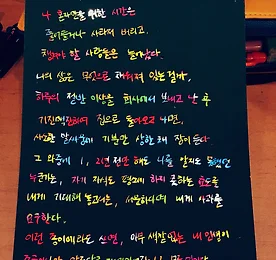 나 혼자만을 위한 시간은
줄어들거나 사라져 버리고.
챙겨야 할 사람들은 늘어났다.
나의 삶은 무엇으로 채워져 있는 걸까,
하루의 절반 이상을 회사에서 보내고 난 후
기진맥진하여 집으로 돌아오고 나면,
사소한 말싸움에 기분만 상한 채 잠이 든다.
그 와중에 1, 2년 전만 해도 나를 알지도 못했던
누군가는, 자기 자식도 평소에 하지 않는 효도를
내게 기대해 놓고서는, 서운하시다며 내게 사과를
요구한다.
이런 와중에라도 신랑, 아무 색깔 없는 내 인생이